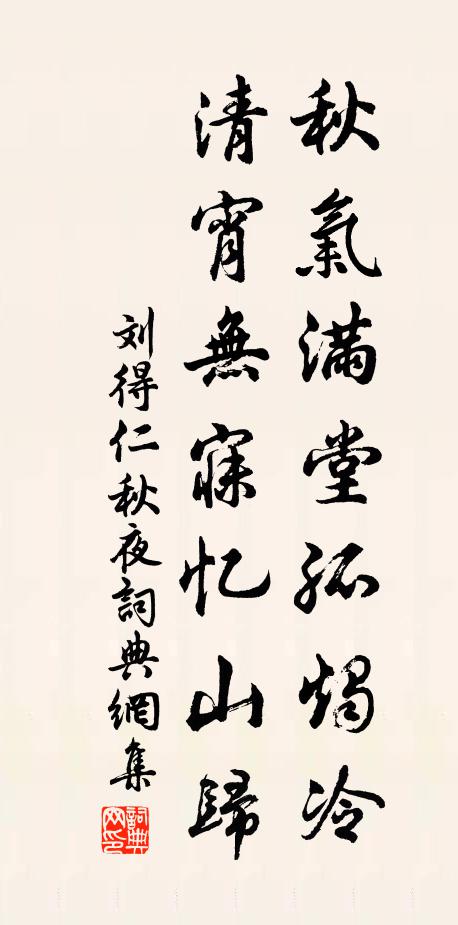 秋氣滿堂孤燭冷
清宵無寐忆山歸
刘得仁秋夜詞典網集
詞典网印